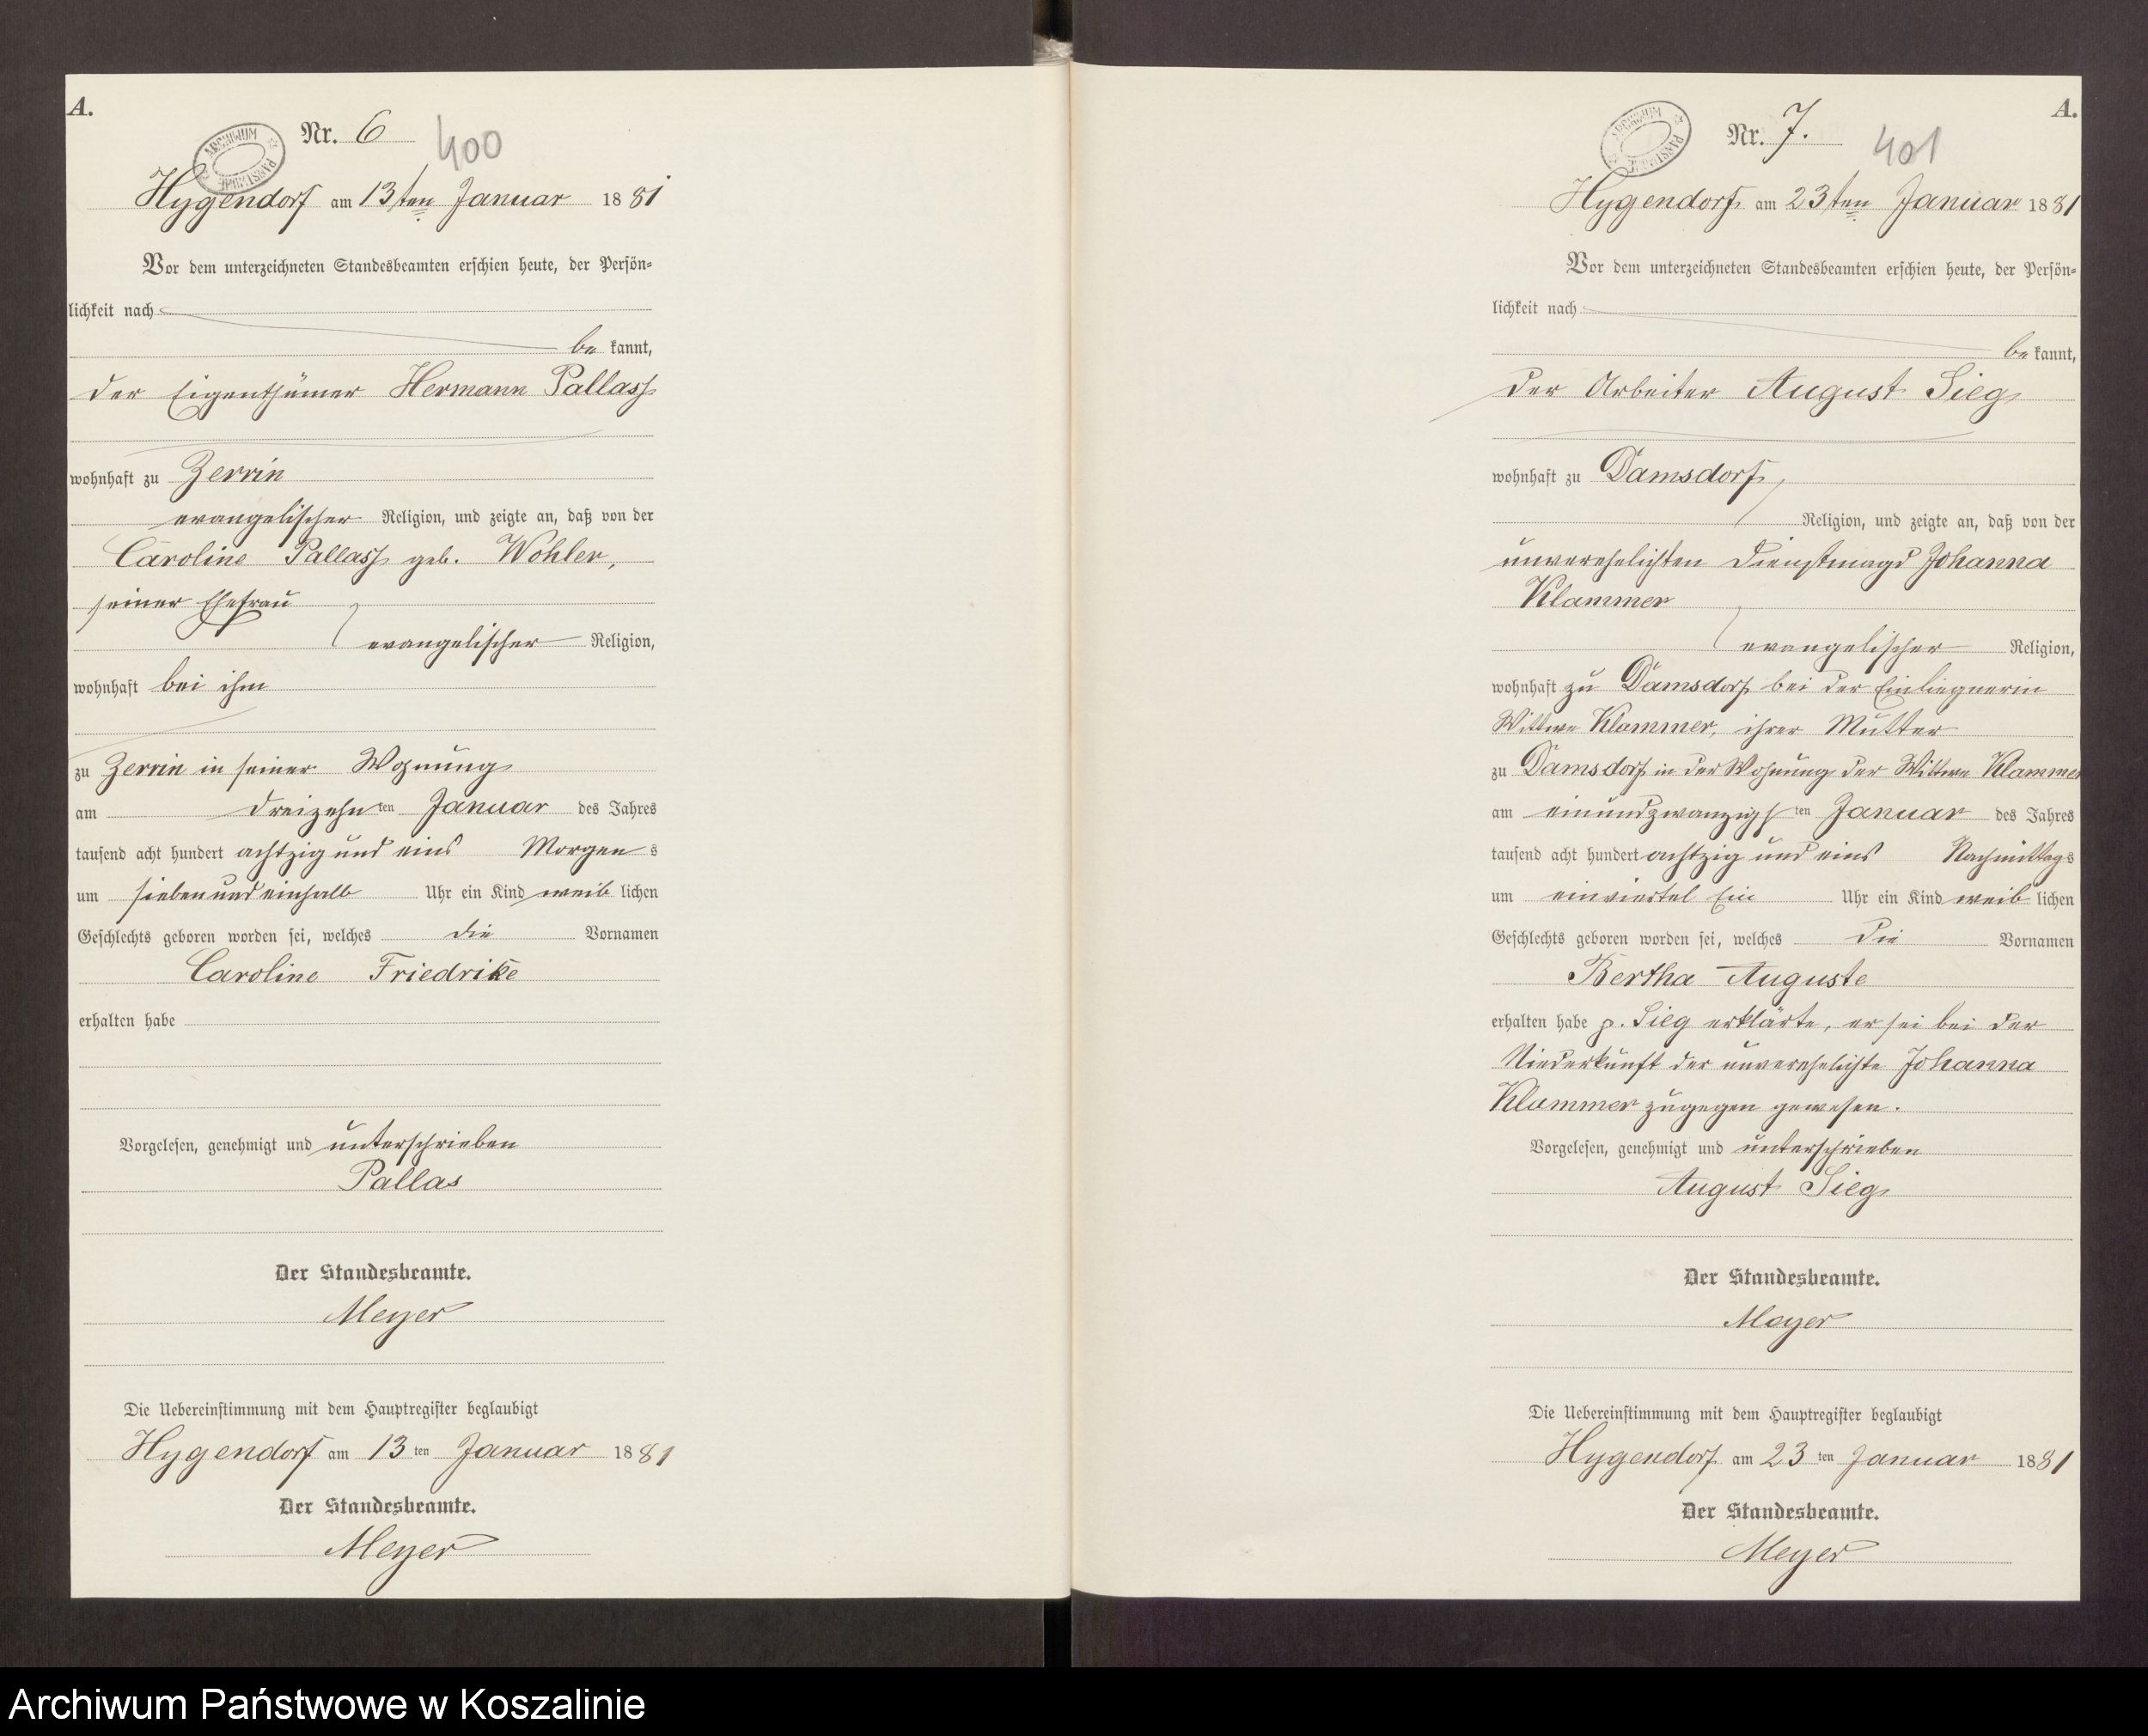 A.
ARCHIWUM PAŃSTWOWE
Nr. 6 400
Hygendorf am 13ten Januar 1881
Vor dem unterzeichneten Standesbeamten erschien heute, der Persön-
lichkeit nach
be kannt,
der Eigenthümer Hermann Pallass
wohnhaft zu Zerrin
evangelischer Religion, und zeigte an, daß von der
Caroline Pallass geb. Wöhler,
seiner Ehefrau
evangelischer Religion,
wohnhaft bei ihm
zu Zerrin in seiner Wohnung
am dreizehn ten Januar des Jahres
tausend acht hundert achtzig und eins Morgen s
um sieben und einhalb Uhr ein Kind weib lichen
Geschlechts geboren worden sei, welches die Vornamen
Caroline Friedrike
erhalten habe
Vorgelesen, genehmigt und unterschrieben
Pallas
Der Standesbeamte.
Meyer
Die Uebereinstimmung mit dem Hauptregister beglaubigt
Hygendorf am 13 ten Januar 1881
Der Standesbeamte.
Meyer
A.
ARCHIWUM PAŃSTWOWE
Nr. 7. 401
Hygendorf am 23ten Januar 1881
Vor dem unterzeichneten Standesbeamten erschien heute, der Persön-
lichkeit nach
be kannt,
der Arbeiter August Sieg
wohnhaft zu Damsdorf
Religion, und zeigte an, daß von der
unverehelichten Dienstmagd Johanna
Klammer
evangelischer Religion,
wohnhaft zu Damsdorf bei der Einliegnerin
Wittwe Klammer, ihrer Mutter
zu Damsdorf in der Wohnung der Wittwe Klammer
am einundzwanzigs ten Januar des Jahres
tausend acht hundert achtzig und eins Nachmittag s
um einviertel Ein Uhr ein Kind weib lichen
Geschlechts geboren worden sei, welches die Vornamen
Bertha Auguste
erhalten habe p. Sieg erklärte, er sei bei der
Niederkunft der unverehelichte Johanna
Klammer zugegen gewesen.
Vorgelesen, genehmigt und unterschrieben
August Sieg
Der Standesbeamte.
Meyer
Die Uebereinstimmung mit dem Hauptregister beglaubigt
Hygendorf am 23 ten Januar 1881
Der Standesbeamte.
Meyer
Archiwum Państwowe w Koszalinie